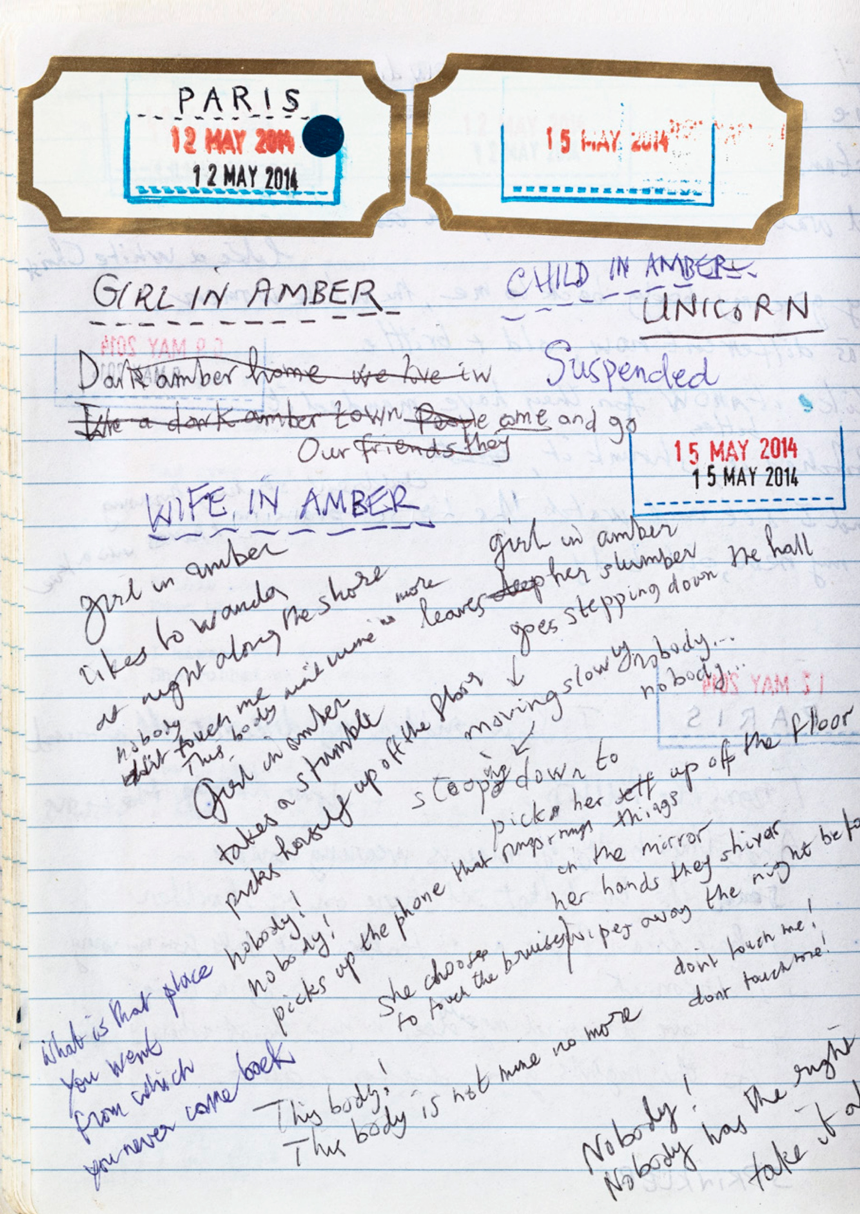 PARIS
12 MAY 2014
12 MAY 2014
15 MAY 2014
GIRL IN AMBER
CHILD IN AMBER
UNICORN
Dark amber home we live in
Suspended
like a dark amber town People come and go
Our friends they
15 MAY 2014
15 MAY 2014
WIFE IN AMBER
girl in amber
likes to wanda
at night along the shore
nobody
dont touch me
This body aint mine no more
Girl in amber
takes a stumble
picks herself up off the floor
nobody!
nobody!
picks up the phone that rings rings
girl in amber
leaves deep her slumber
goes stepping down the hall
moving slowly nobody...
nobody...
stooping down to
picks her self up off the floor
things
in the mirror
her hands they shiver
wipes away the night befo
She chooses
to touch the bruises
dont touch me!
dont touch me!
What is that place
you went
from which
you never came back
This body!
This body is not mine no more
Nobody!
Nobody has the right
take it a